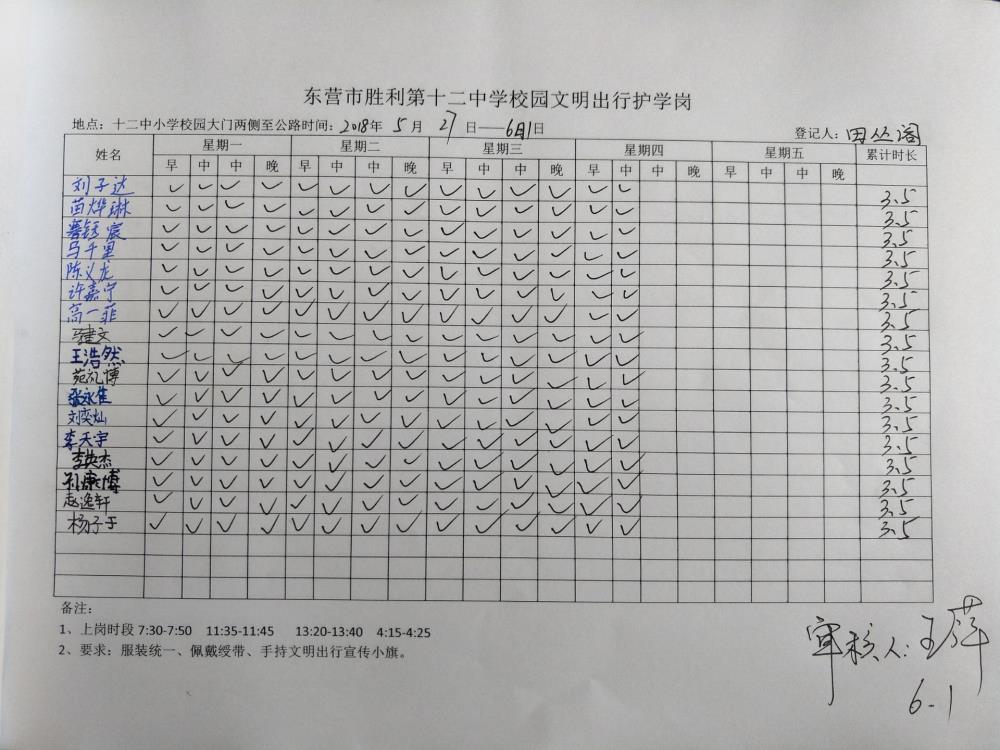 东营市胜利第十二中学校园文明出行护学岗
地点：十二中小学校园大门两侧至公路时间：2018年 5月 27日——6月1日 登记人：田丛阁
姓名 星期一 星期二 星期三 星期四 星期五 累计时长
早 中 中 晚 早 中 中 晚 早 中 中 晚 早 中 中 晚 早 中 中 晚
刘子达 ✓ ✓ ✓ ✓ ✓ ✓ ✓ ✓ ✓ ✓ ✓ ✓ ✓ ✓ 3.5
苗烨琳 ✓ ✓ ✓ ✓ ✓ ✓ ✓ ✓ ✓ ✓ ✓ ✓ ✓ ✓ 3.5
宸 ✓ ✓ ✓ ✓ ✓ ✓ ✓ ✓ ✓ ✓ ✓ ✓ ✓ ✓ 3.5
马千里 ✓ ✓ ✓ ✓ ✓ ✓ ✓ ✓ ✓ ✓ ✓ ✓ ✓ ✓ 3.5
陈义龙 ✓ ✓ ✓ ✓ ✓ ✓ ✓ ✓ ✓ ✓ ✓ ✓ ✓ ✓ 3.5
许嘉宁 ✓ ✓ ✓ ✓ ✓ ✓ ✓ ✓ ✓ ✓ ✓ ✓ ✓ ✓ 3.5
高一菲 ✓ ✓ ✓ ✓ ✓ ✓ ✓ ✓ ✓ ✓ ✓ ✓ ✓ ✓ 3.5
马建文 ✓ ✓ ✓ ✓ ✓ ✓ ✓ ✓ ✓ ✓ ✓ ✓ ✓ ✓ 3.5
王浩然 ✓ ✓ ✓ ✓ ✓ ✓ ✓ ✓ ✓ ✓ ✓ ✓ ✓ ✓ 3.5
苑礼博 ✓ ✓ ✓ ✓ ✓ ✓ ✓ ✓ ✓ ✓ ✓ ✓ ✓ ✓ 3.5
张永佳 ✓ ✓ ✓ ✓ ✓ ✓ ✓ ✓ ✓ ✓ ✓ ✓ ✓ ✓ 3.5
刘奕灿 ✓ ✓ ✓ ✓ ✓ ✓ ✓ ✓ ✓ ✓ ✓ ✓ ✓ ✓ 3.5
李天宇 ✓ ✓ ✓ ✓ ✓ ✓ ✓ ✓ ✓ ✓ ✓ ✓ ✓ ✓ 3.5
李英杰 ✓ ✓ ✓ ✓ ✓ ✓ ✓ ✓ ✓ ✓ ✓ ✓ ✓ ✓ 3.5
刘康博 ✓ ✓ ✓ ✓ ✓ ✓ ✓ ✓ ✓ ✓ ✓ ✓ ✓ ✓ 3.5
赵逸轩 ✓ ✓ ✓ ✓ ✓ ✓ ✓ ✓ ✓ ✓ ✓ ✓ ✓ ✓ 3.5
杨子于 ✓ ✓ ✓ ✓ ✓ ✓ ✓ ✓ ✓ ✓ ✓ ✓ ✓ ✓ 3.5
备注：
1、上岗时段 7:30-7:50 11:35-11:45 13:20-13:40 4:15-4:25
2、要求：服装统一、佩戴绶带、手持文明出行宣传小旗。
审核人：王萍
6-1